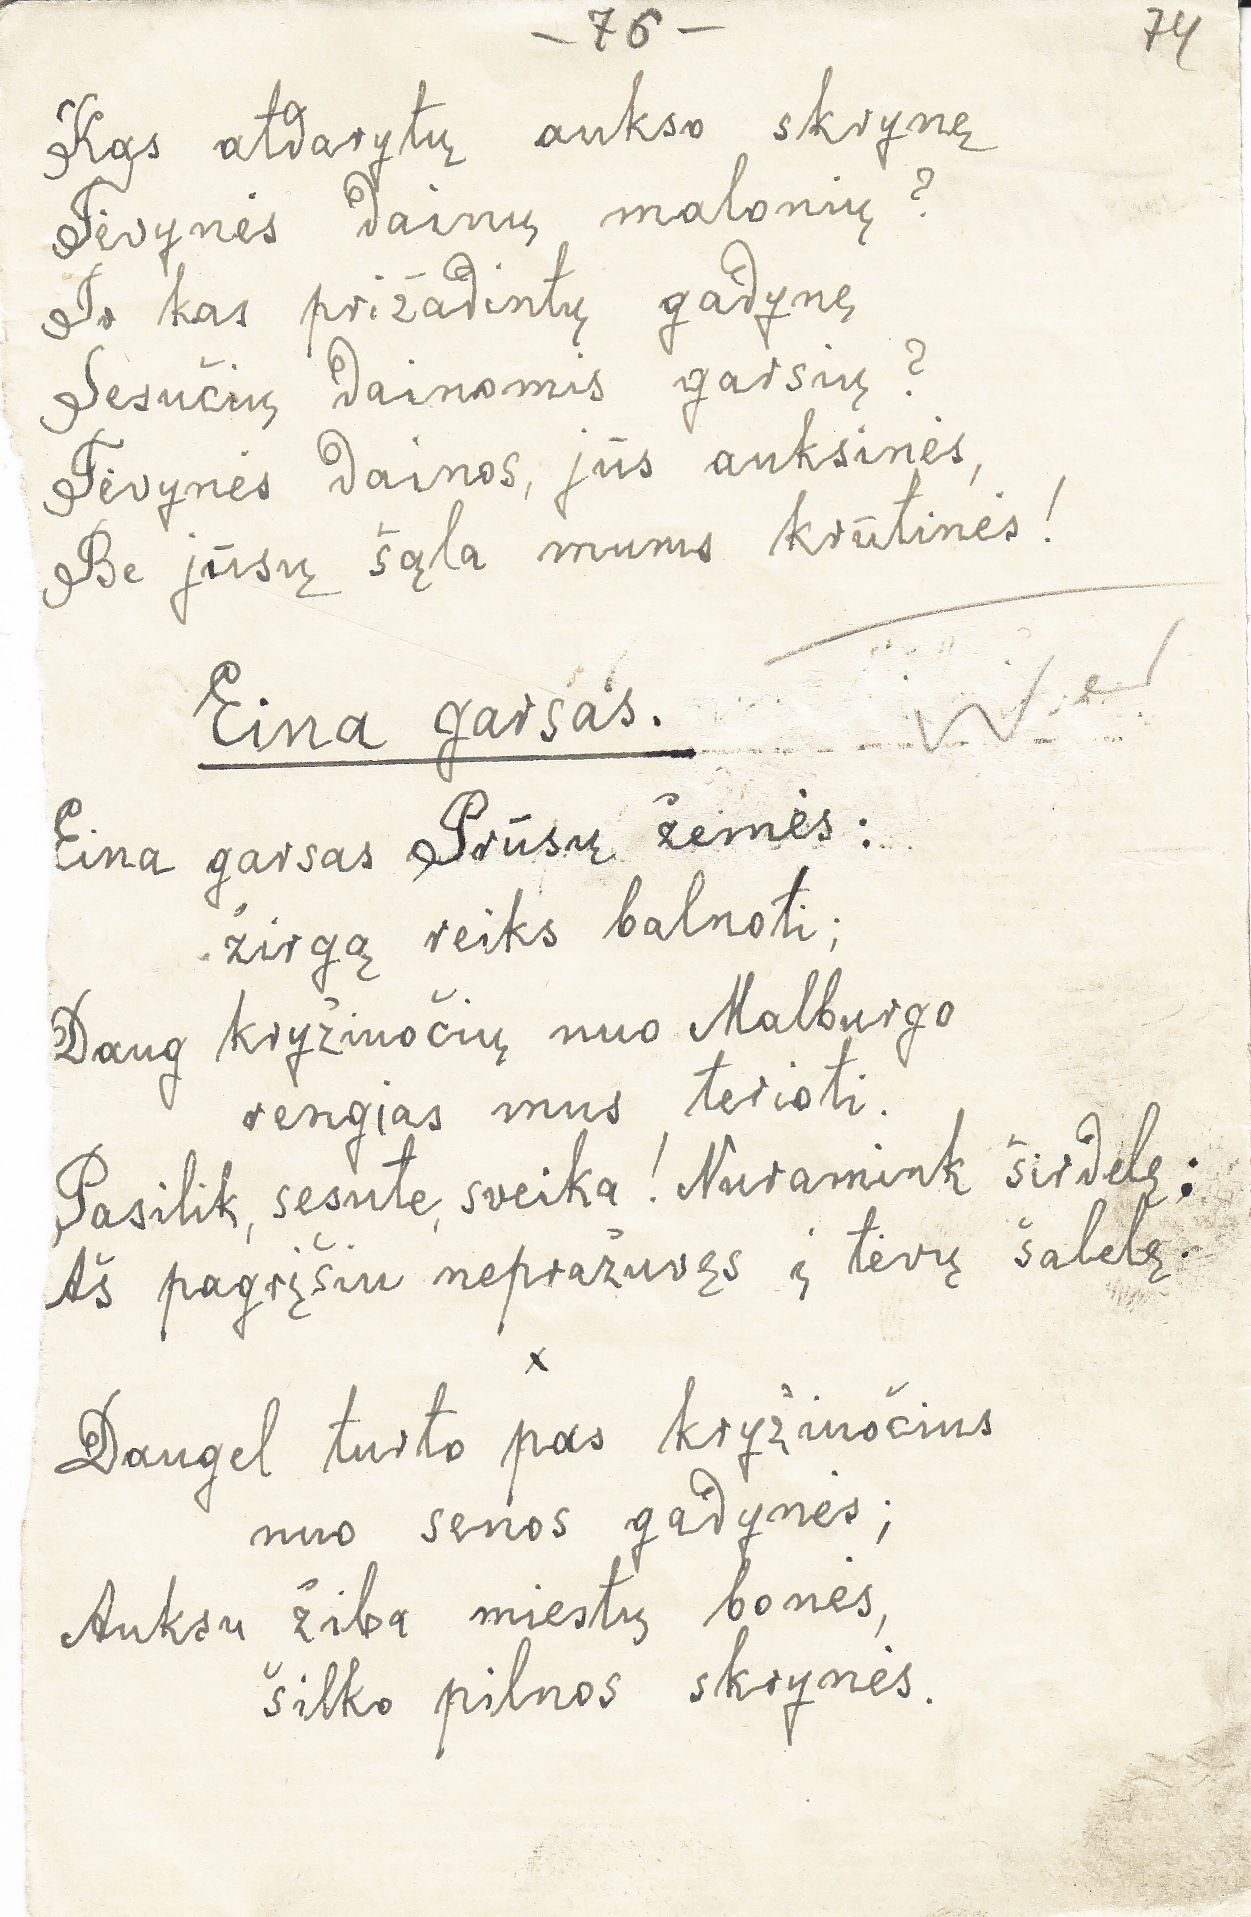 - 76 -
74
Kas atdarytų aukso skrynę
Tėvynės dainų malonių?
Ir kas prižadintų gadynę
Sesučių dainomis garsių?
Tėvynės dainos, jūs auksinės,
Be jūsų šąla mums krūtinės!
Eina garsas.
Eina garsas Prūsų žemės:
žirgą reiks balnoti;
Daug kryžiuočių nuo Malburgo
rengias mus terioti.
Pasilik, sesute, sveika! Nuramink širdelę;
Aš pagrįšiu nepražuvęs į tėvų šalelę.
x
Daugel turto pas kryžiuočius
nuo senos gadynės;
Auksu žiba miestų bonės,
šilko pilnos skrynės.